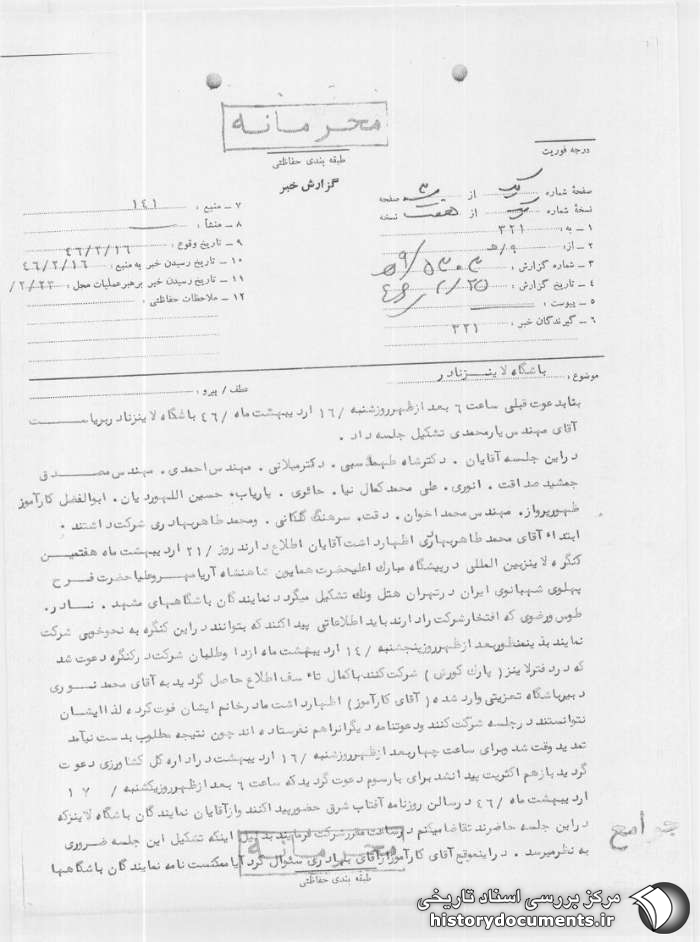 محرمانه
طبقه بندی حفاظتی
گزارش خبر
درجه فوریت
صفحهٔ شماره یک از ۳ صفحه
نسخهٔ شماره از هفت نسخه
۱ ـ به : ۳۲۱
۲ ـ از : ۹/ ه
۳ ـ شماره گزارش : ۵۳۰۳/ ۹ه
۴ ـ تاریخ گزارش : ۴۶/۲/۲۵
۵ ـ پیوست :
۶ ـ گیرندگان خبر : ۳۲۱
۷ ـ منبع : ۱۴۱
۸ ـ منشأ :
۹ ـ تاریخ وقوع : ۴۶/۲/۱۶
۱۰ ـ تاریخ رسیدن خبر به منبع : ۴۶/۲/۱۶
۱۱ ـ تاریخ رسیدن خبر برهبر عملیات محل : /۲/۲۳
۱۲ ـ ملاحظات حفاظتی :
موضوع : باشگاه لاینز نادر
عطف / پیرو :
بنابدعوت قبلی ساعت ۶ بعد ازظهر روز شنبه /۱۶ اردیبهشت ماه /۴۶ باشگاه لاینز نادر بریاست
آقای مهندس یارمحمدی تشکیل جلسه داد .
دراین جلسه آقایان . دکتر شاه طهماسبی . دکتر میلانی . مهندس احمدی . مهندس مصدق
جمشید صداقت . انوری . علی محمد کمال نیا . حائری . باریاب حسین اللهوردیان . ابوالفضل کارآموز
ظهور پرواز . مهندس محمد اخوان . دقت . سرهنگ گلکانی . ومحمد طاهر بهادری شرکت داشتند .
ابتداء آقای محمد طاهر بهادری اظهار داشت آقایان اطلاع دارند روز /۲۱ اردیبهشت ماه هفتمین
کنگره لاینز بین المللی درپیشگاه مبارک اعلیحضرت همایون شاهنشاه آریامهر وعلیاحضرت فرح
پهلوی شهبانوی ایران درتهران هتل ونک تشکیل میگردد نمایندگان باشگاههای مشهد . نادر .
طوس ورضوی که افتخار شرکت را دارند باید اطلاعاتی پیدا کنند که بتوانند دراین کنگره به نحو خوبی شرکت
نمایند بدینمنظور بعد ازظهر روز پنجشنبه /۱۴ اردیبهشت ماه ازداوطلبان شرکت در کنگره دعوت شد
که در دفتر لاینز ( پارک کورش ) شرکت کنند باکمال تاءسف اطلاع حاصل گردید به آقای محمد نوری
دبیر باشگاه تعزیتی وارد شده ( آقای کارآموز ) اظهار داشت مادرخانم ایشان فوت کرده لذا ایشان
نتوانستند درجلسه شرکت کنند ودعوتنامه دیگرانراهم نفرستاده اند چون نتیجه مطلوب بدست نیآمد
تمدید وقت شد وبرای ساعت چهار بعد ازظهر روز شنبه /۱۶ اردیبهشت در اداره کل کشاورزی دعوت
گردید بازهم اکثریت پیدا نشد برای بار سوم دعوت گردید که ساعت ۶ بعد ازظهر روز یکشنبه / ۱۷
اردیبهشت ماه /۴۶ درسالن روزنامه آفتاب شرق حضور پیدا کنند وازآقایان نمایندگان باشگاه لاینز که
دراین جلسه حاضرند تقاضا میکنم درساعت مقرر شرکت فرمایند اینکه تشکیل این جلسه ضروری
به نظر میرسد . دراینموقع آقای کارآموز ازآقای بهادری سئوال کرد آیا ممکنست نامه نمایندگان باشگاهها
جوامع
محرمانه
طبقه بندی حفاظتی
مرکز بررسی اسناد تاریخی
historydocuments.ir